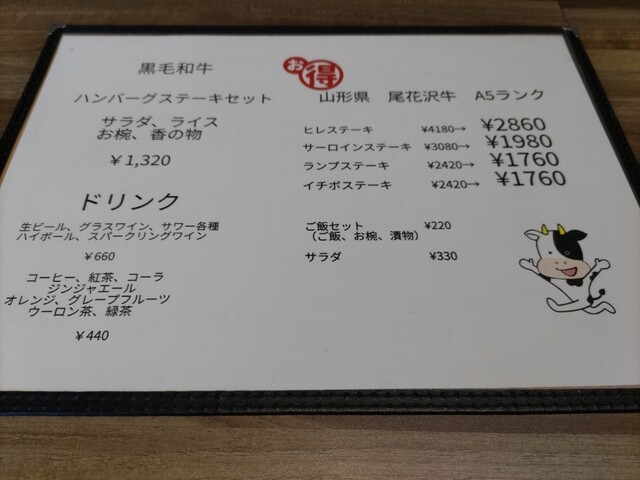 黒毛和牛
ハンバーグステーキセット
サラダ、ライス
お椀、香の物
￥1,320
ドリンク
生ビール、グラスワイン、サワー各種
ハイボール、スパークリングワイン
￥660
コーヒー、紅茶、コーラ
ジンジャエール
オレンジ、グレープフルーツ
ウーロン茶、緑茶
￥440
お得
山形県 尾花沢牛 A5ランク
ヒレステーキ ¥4180→ ¥2860
サーロインステーキ ¥3080→ ¥1980
ランプステーキ ¥2420→ ¥1760
イチボステーキ ¥2420→ ¥1760
ご飯セット ¥220
（ご飯、お椀、漬物）
サラダ ¥330